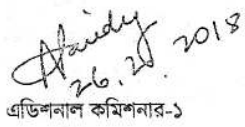 26.2.2018
এডিশনাল কমিশনার-১